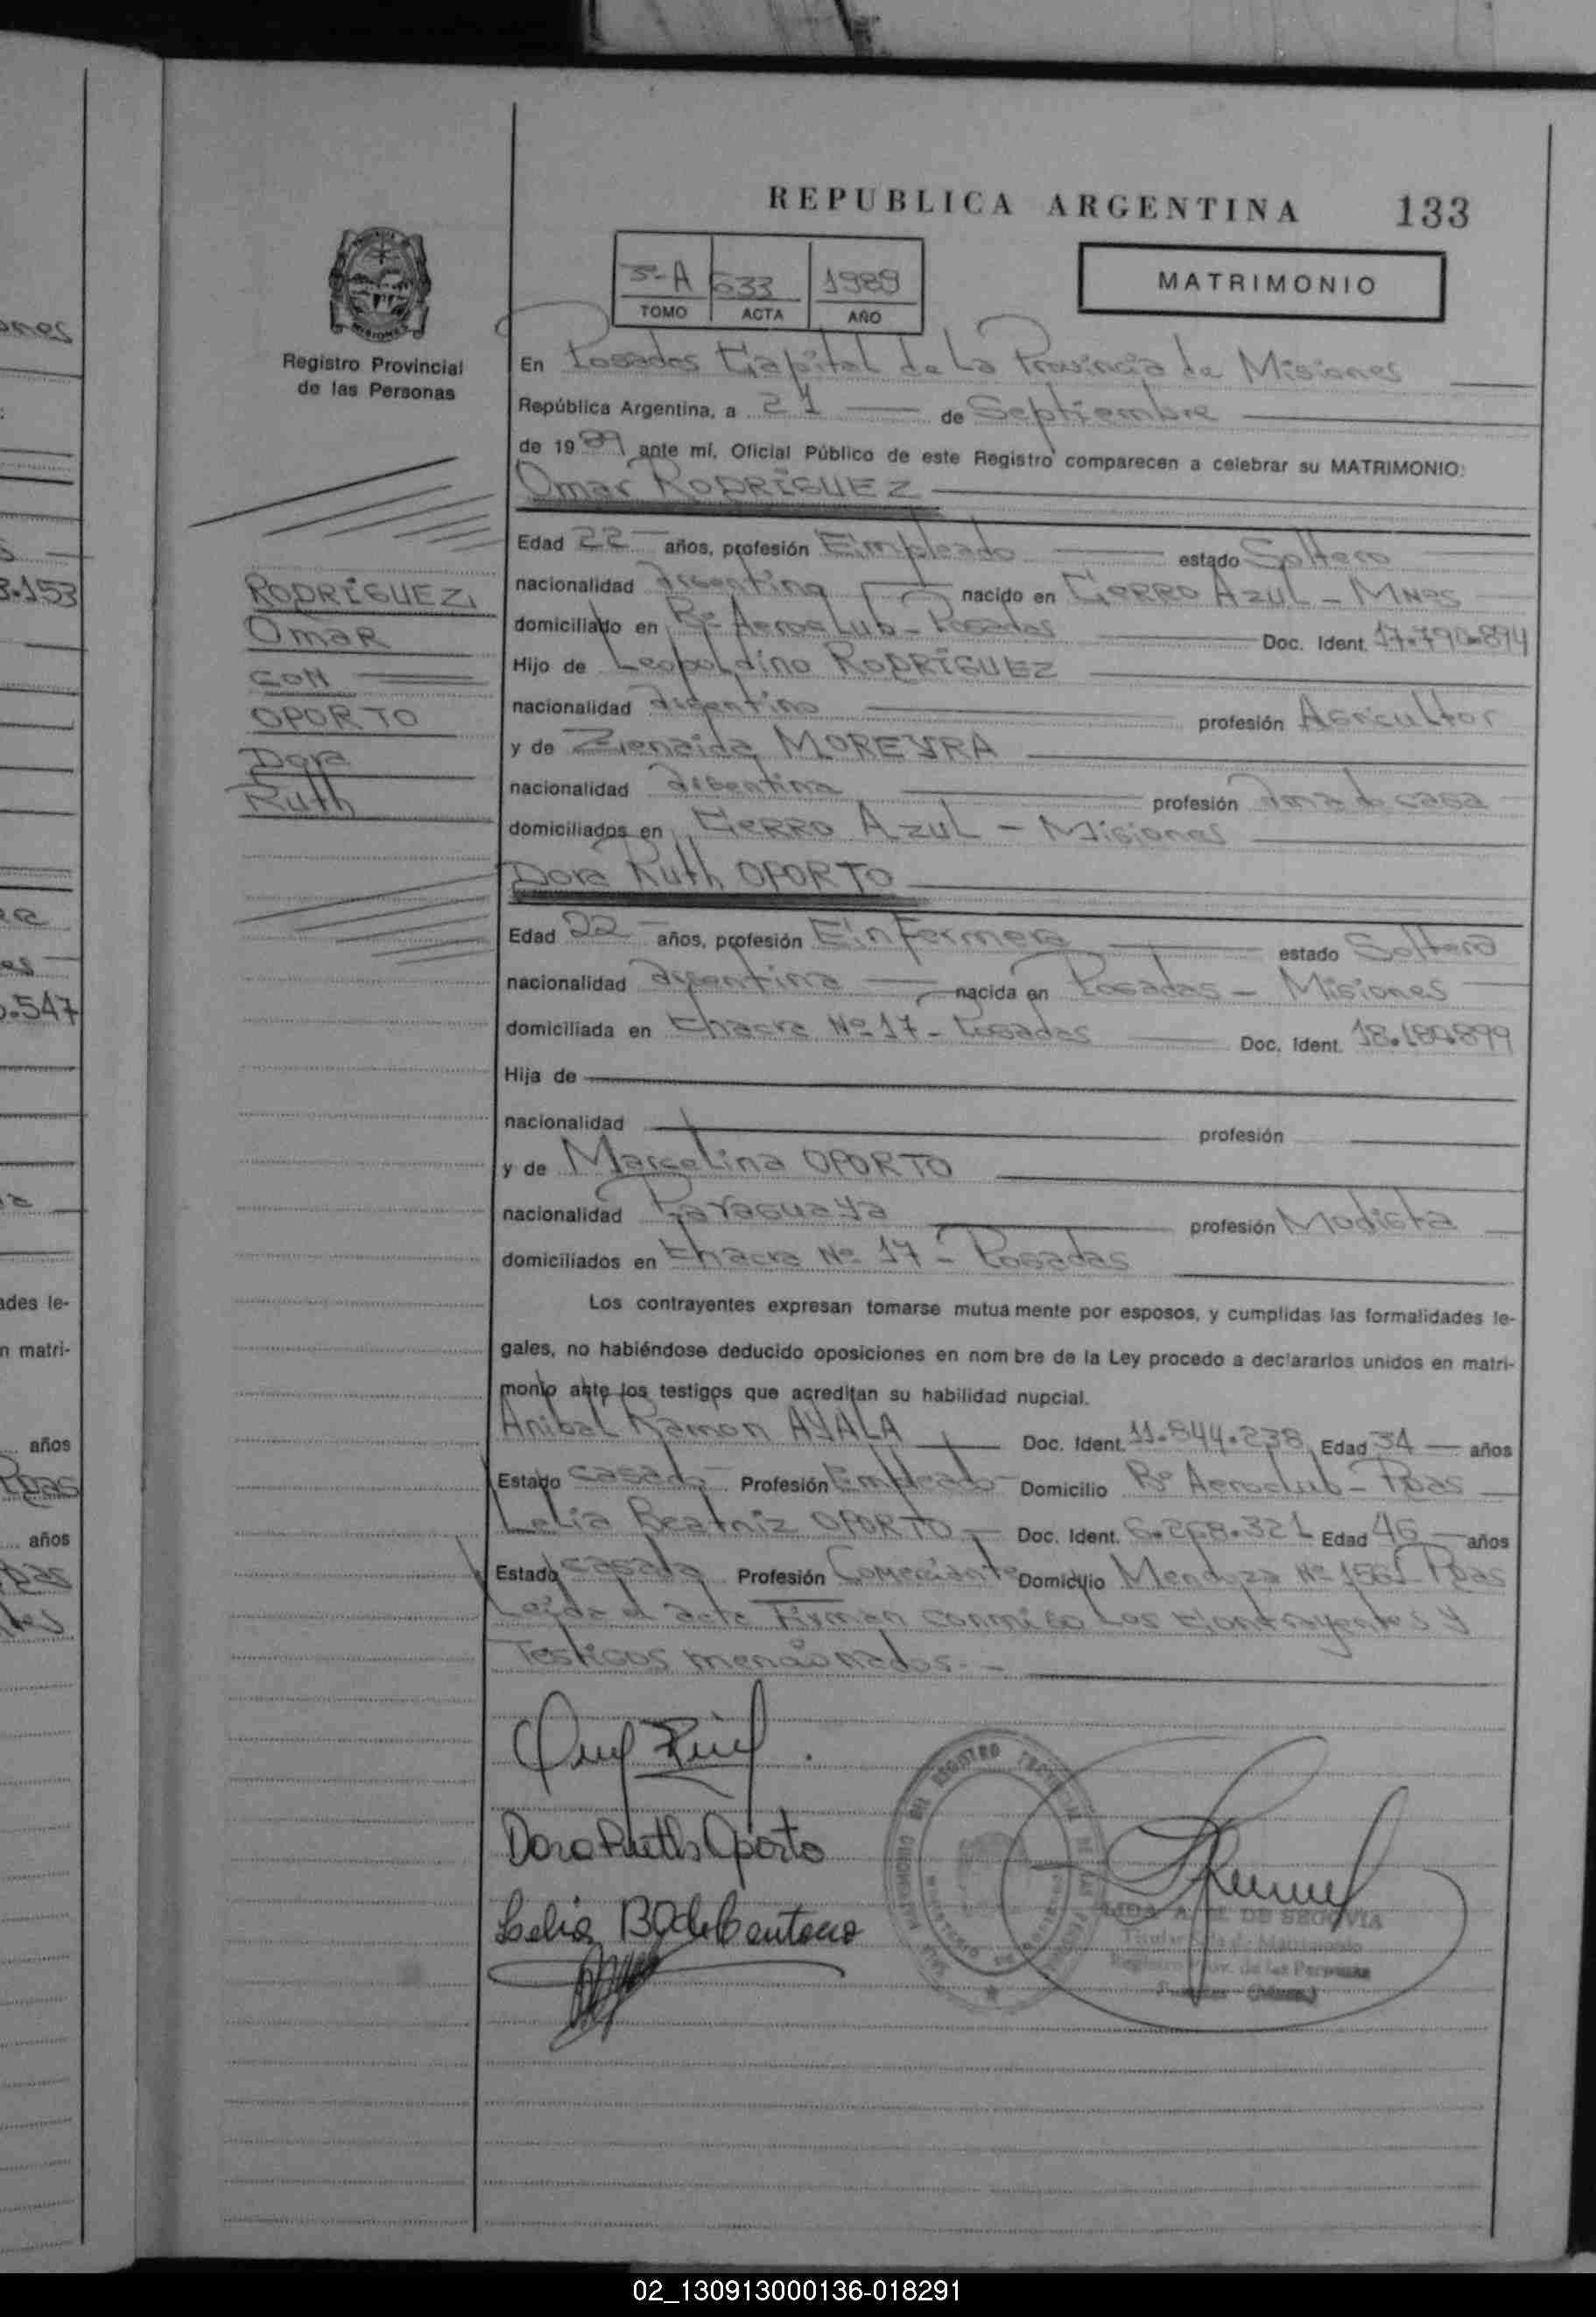 REPUBLICA ARGENTINA 133
MATRIMONIO
5º-A 633 1989
TOMO ACTA AÑO
MISIONES
Registro Provincial
de las Personas
En Posadas Capital de La Provincia de Misiones
República Argentina, a 21 de Septiembre
de 1989 ante mí, Oficial Público de este Registro comparecen a celebrar su MATRIMONIO:
Omar RODRÍGUEZ
Edad 22 años, profesión Empleado estado Soltero
nacionalidad argentina nacido en Cerro Azul - Mnes
domiciliado en Bº Aeroclub - Posadas Doc. Ident. 17.790.894
Hijo de Leopoldino RODRÍGUEZ
nacionalidad argentino profesión Agricultor
y de Zienaida MOREYRA
nacionalidad argentina profesión ama de casa
domiciliados en Cerro Azul - Misiones
RODRÍGUEZ,
Omar
CON
OPORTO
Dora
Ruth
Dora Ruth OPORTO
Edad 22 años, profesión Enfermera estado Soltera
nacionalidad argentina nacida en Posadas - Misiones
domiciliada en Chacra Nº 17 - Posadas Doc. Ident. 18.180.899
Hija de
nacionalidad profesión
y de Marcelina OPORTO
nacionalidad Paraguaya profesión Modista
domiciliados en Chacra Nº 17 - Posadas
Los contrayentes expresan tomarse mutua mente por esposos, y cumplidas las formalidades le-
gales, no habiéndose deducido oposiciones en nom bre de la Ley procedo a declararlos unidos en matri-
monio ante los testigos que acreditan su habilidad nupcial.
Anibal Ramon AYALA Doc. Ident. 11.844.238 Edad 34 años
Estado casado Profesión Empleado Domicilio Bº Aeroclub - Pdas
Lelia Beatriz OPORTO Doc. Ident. 6.268.321 Edad 46 años
Estado casada Profesión Comerciante Domicilio Mendoza Nº 1561 Pdas
Leída el acta Firman conmigo Los Contrayentes y
Testigos mencionados. -
Dora Ruth Oporto
Lelia B O de Centeno
DE SEGOVIA
Titular Sala de Matrimonio
Registro Prov. de las Personas
ones
3.153
0.547
ades le-
n matri-
años
Pdas
años
02_130913000136-018291